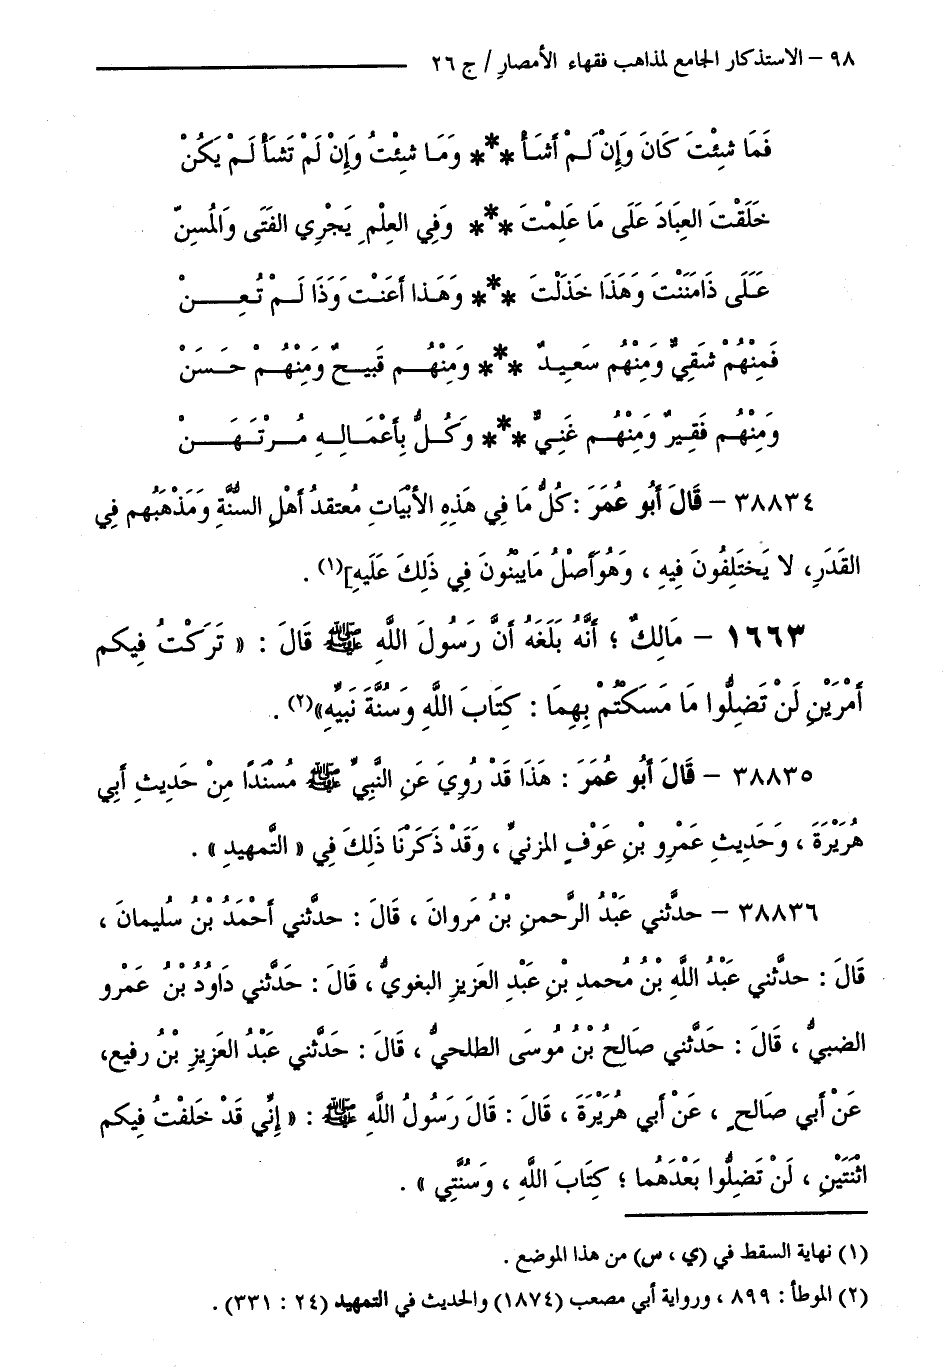 ٩٨ – الاستذكار الجامع لمذاهب فقهاء الأمصارِ / ج ٢٦
فَمَا شِئْتَ كَانَ وَإِنْ لَمْ أَشَأْ *** وَمَا شِئْتُ وَإِنْ لَمْ تَشَأْ لَمْ يَكُنْ
خَلَقْتَ العِبَادَ عَلَى مَا عَلِمْتَ *** وَفِي العِلْمِ يَجْرِي الفَتَى وَالْمُسِنّ
عَلَى ذَا مَنَنْتَ وَهَذَا خَذَلْتَ *** وَهَذا أَعَنْتَ وَذَا لَمْ تُعِنْ
فَمِنْهُمْ شَقِيٌّ وَمِنْهُم سَعِيدٌ *** وَمِنْهُم قَبِيحٌ وَمِنْهُمْ حَسَنْ
وَمِنْهُم فَقِيرٌ وَمِنْهُم غَنِيٌّ *** وَكُلٌّ بِأَعْمَالِهِ مُرْتَهَنْ
٣٨٨٣٤ – قَالَ أَبُو عُمَرَ : كُلُّ مَا فِي هَذِهِ الأَبْيَاتِ مُعتقدُ أَهْلِ السُنَّةِ وَمَذْهَبُهم فِي
القَدَرِ، لا يَختَلِفُونَ فِيهِ ، وَهُوَ أَصْلُ مَا يبْنُونَ فِي ذَلِكَ عَلَيهِ](١) .
١٦٦٣ – مَالِكٌ ؛ أَنَّهُ بَلَغَهُ أَنَّ رَسُولَ اللَّهِ ﷺ قَالَ : « تَرَكْتُ فِيكم
أَمْرَيْنِ لَنْ تَضِلُّوا مَا مَسَكْتُمْ بِهِمَا : كِتَابَ اللَّهِ وَسُنَّةَ نَبِيِّهِ»(٢) .
٣٨٨٣٥ – قَالَ أَبُو عُمَرَ : هَذَا قَدْ رُوِيَ عَنِ النَّبِيِّ ﷺ مُسْنَدًا مِنْ حَدِيثِ أَبِي
هُرَيْرَةَ ، وَحَدِيثِ عَمْرِو بْنِ عَوْفٍ المزنيِّ ، وَقَدْ ذَكَرْنَا ذَلِكَ فِي « التَّمهيدِ » .
٣٨٨٣٦ – حدَّثني عَبْدُ الرَّحمنِ بْنُ مَروانَ ، قَالَ : حدَّثني أَحْمَدُ بْنُ سُليمانَ ،
قَالَ : حدَّثني عَبْدُ اللَّهِ بْنُ مُحمدِ بْنِ عَبْدِ العَزيزِ البغويُّ ، قَالَ : حَدَّثني دَاوُدُ بْنُ عَمْرو
الضبيُّ ، قَالَ : حَدَّثني صَالحُ بْنُ مُوسَى الطلحيُّ ، قَالَ : حَدَّثني عَبْدُ العَزِيزِ بْنُ رفيع،
عَنْ أَبي صَالحٍ ، عَنْ أَبي هُرَيْرَةَ ، قَالَ : قَالَ رَسُولُ اللَّهِ ﷺ : « إِنِّي قَدْ خَلفْتُ فِيكم
اثْنَتَيْنِ ، لَنْ تَضِلُّوا بَعْدَهُما ؛ كِتَابَ اللَّهِ ، وَسُنَّتِي » .
(١) نهاية السقط في (ي ، س) من هذا الموضع .
(٢) الموطأ : ٨٩٩ ، ورواية أبي مصعب (١٨٧٤) والحديث في التمهيد (٢٤ : ٣٣١) .